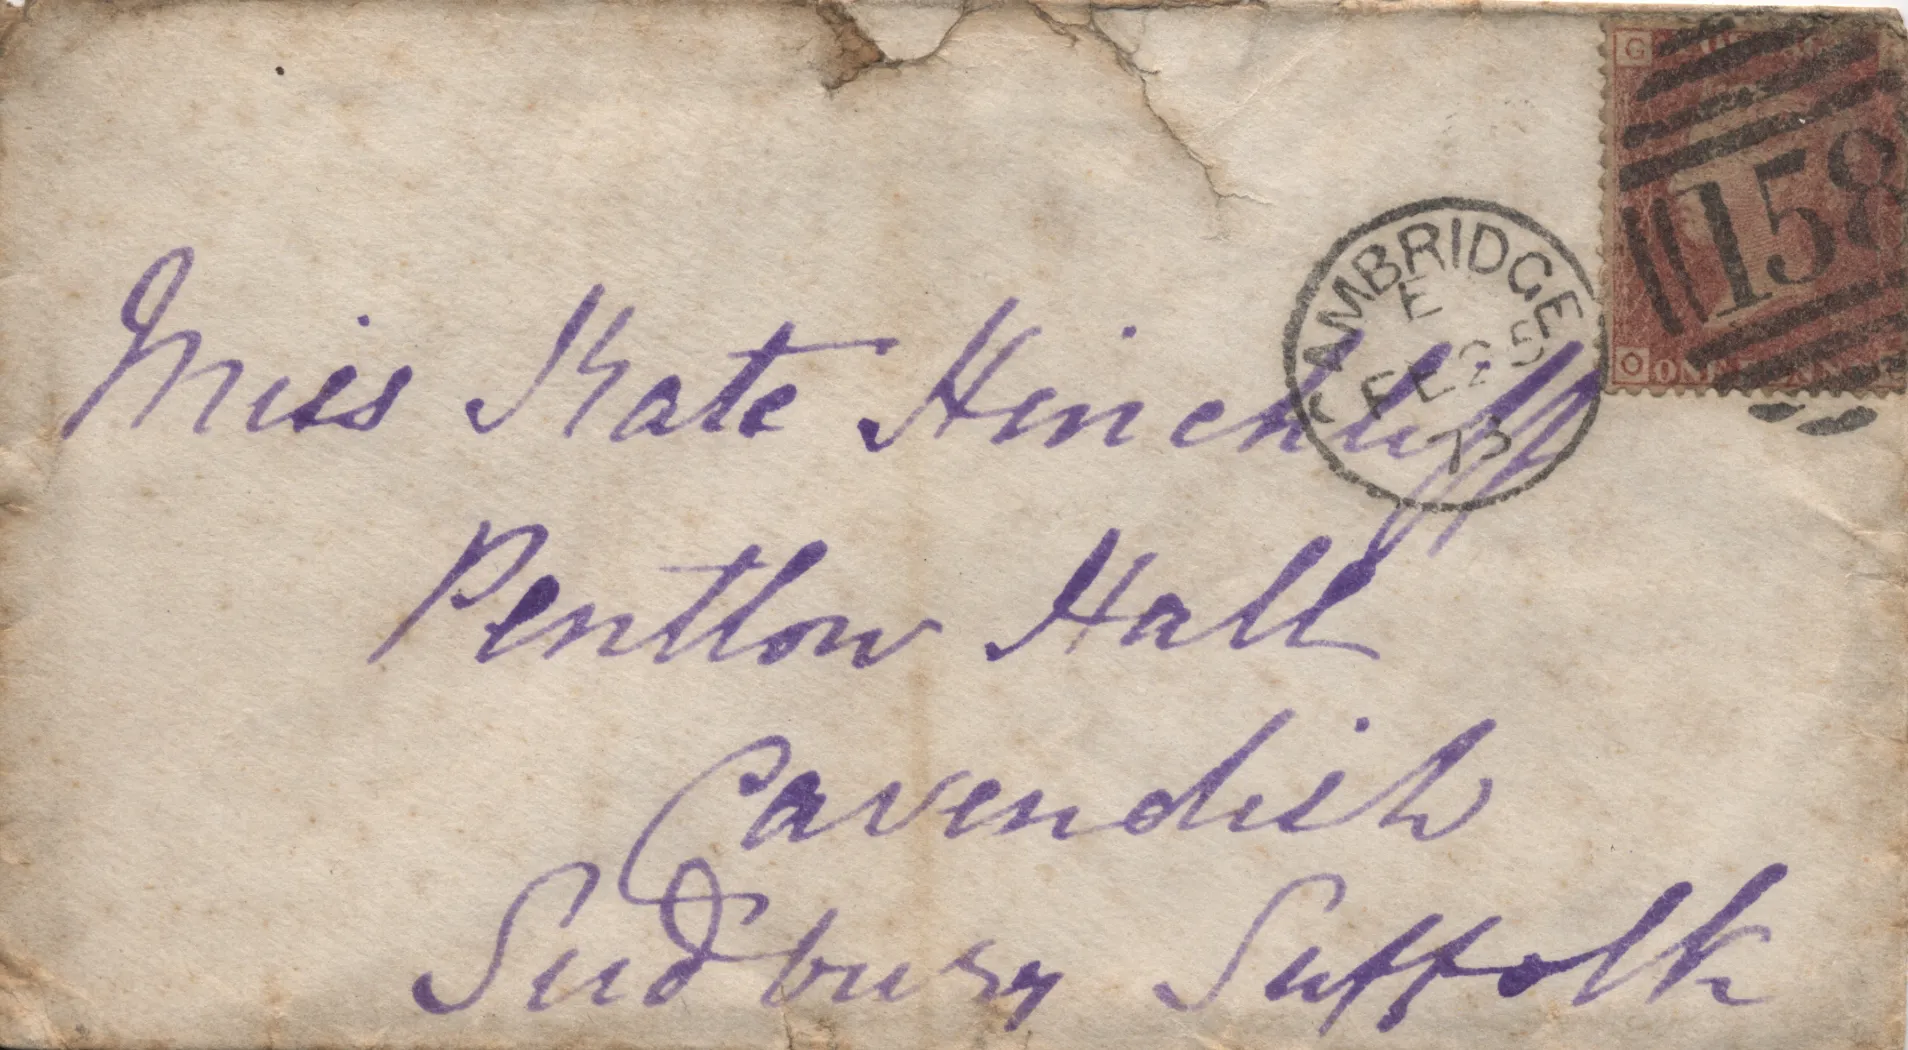 G
158
CAMBRIDGE
E
FE 25
73
O ONE PENNY
Miss Kate Hinchliff
Pentlow Hall
Cavendish
Sudbury Suffolk